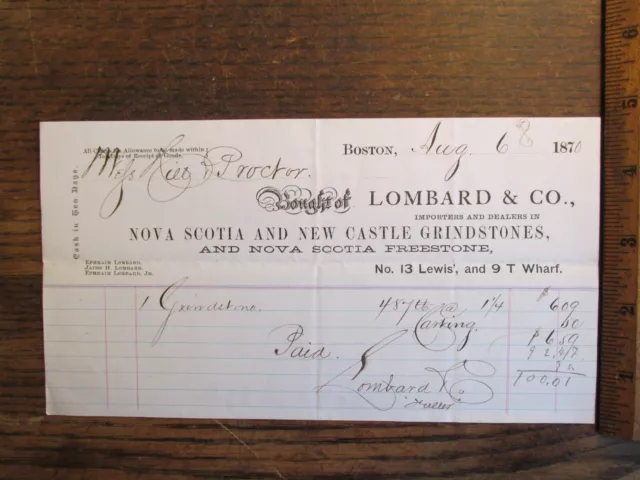 All Claims for Allowance to be made within
Ten Days of Receipt of Goods.
Cash in Ten Days.
Boston, Aug 6 1870
Mess & Proctor.
Bought of LOMBARD & CO.,
IMPORTERS AND DEALERS IN
NOVA SCOTIA AND NEW CASTLE GRINDSTONES,
AND NOVA SCOTIA FREESTONE,
Ephraim Lombard.
Jacob H. Lombard.
Ephraim Lombard, Jr.
No. 13 Lewis', and 9 T Wharf.
1 Grindstone. 487 lb 1 1/4 $ 6.09
Carting. 50
Paid. $ 6.59
92.47
100.01
Lombard & Co
5
4
3
2
1